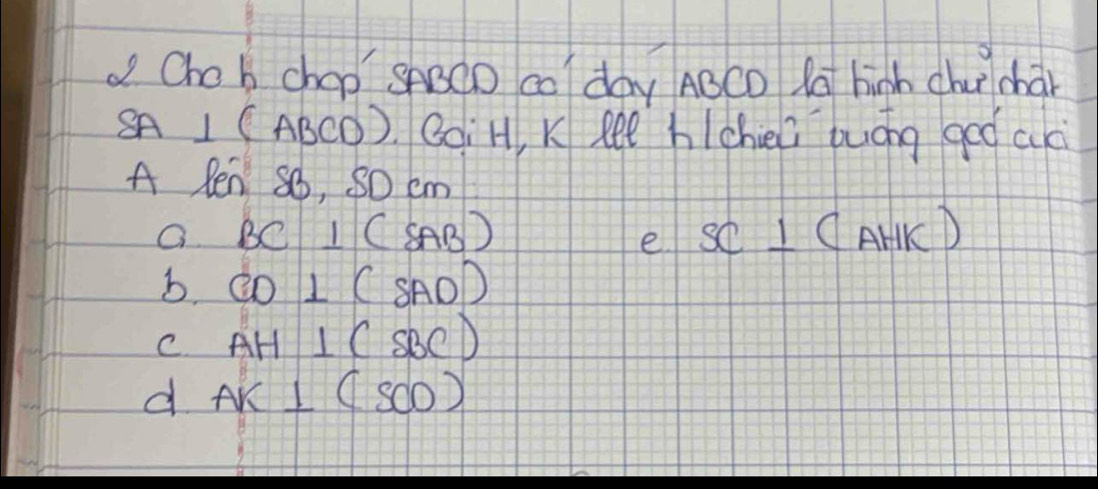 2 Cho h chóp SABCD có đáy ABCD là hình chữ nhật
SA ⊥ (ABCD). Gọi H, K lll h/chiếu vuông góc của
A lên SB, SD cm
a. BC ⊥ (SAB) e. SC ⊥ (AHK)
b. CD ⊥ (SAD)
c. AH ⊥ (SBC)
d. AK ⊥ (SCD)